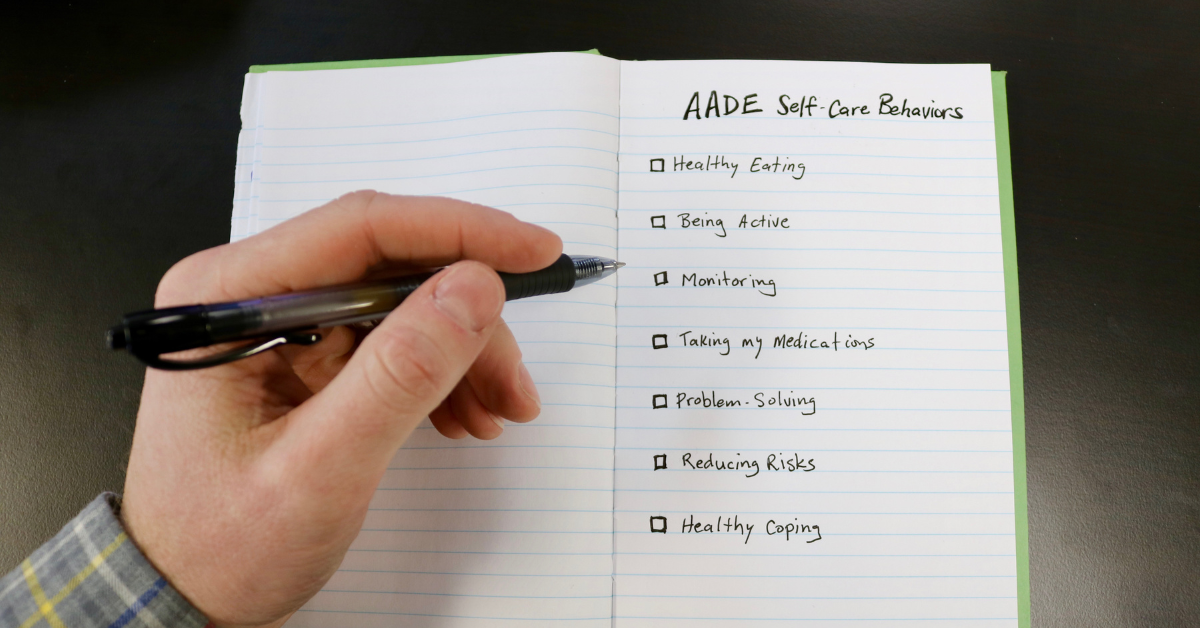 AADE Self-Care Behaviors
Healthy Eating
Being Active
Monitoring
Taking my Medications
Problem-Solving
Reducing Risks
Healthy Coping